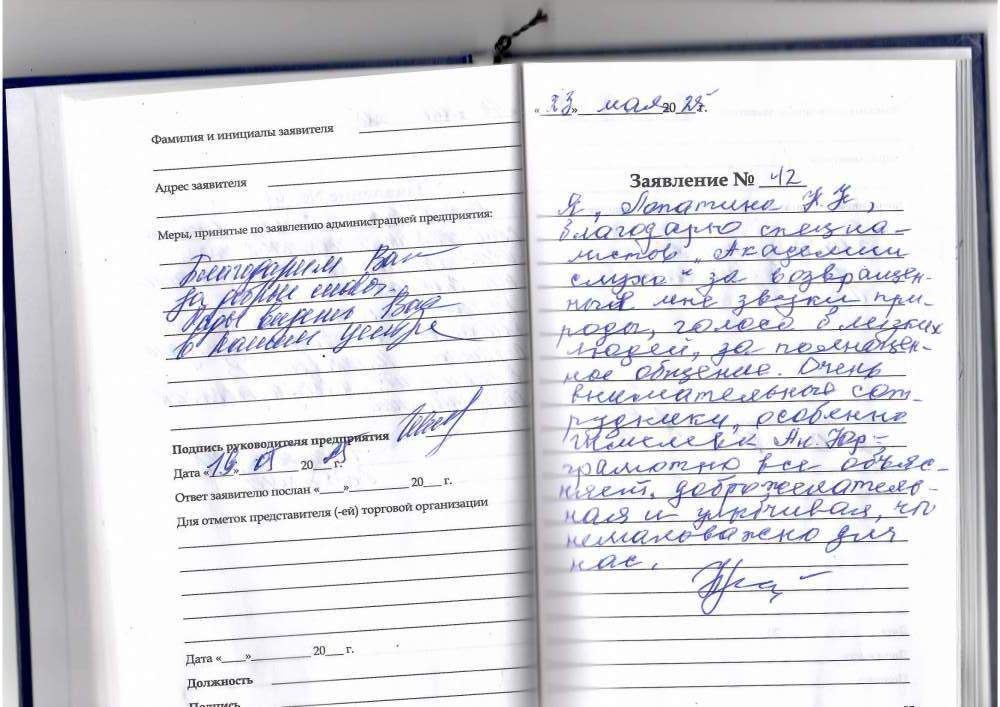 Фамилия и инициалы заявителя
Адрес заявителя
Меры, принятые по заявлению администрацией предприятия:
Благодарим Вас
за добрые слова.
Рады видеть Вас
в нашем центре
Подпись руководителя предприятия
Дата «19» 05 20 25 г.
Ответ заявителю послан «___»__________ 20___ г.
Для отметок представителя (-ей) торговой организации
Дата «___»__________ 20___ г.
Должность
Подпись
«23» мая 20 25 г.
Заявление № 42
Я, Лопатина Н. Н,
благодарю специа-
листов „Академии
слуха“ за возвращен-
ные мне звуки при-
роды, голоса близких
людей, за полноцен-
ное общение. Очень
внимательные сот-
рудники, особенно
Ан. Юр-
грамотно все объяс-
няет, доброжелатель-
ная и улыбчивая, что
немаловажно для
нас.